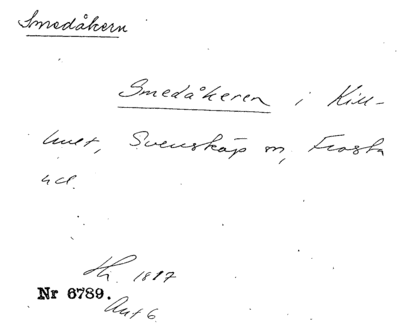 Smedåkern
Smedåkeren i Kill-
hult, Svensköp sn, Frosta
hd.
1897
Nr 6789.
Ant 6